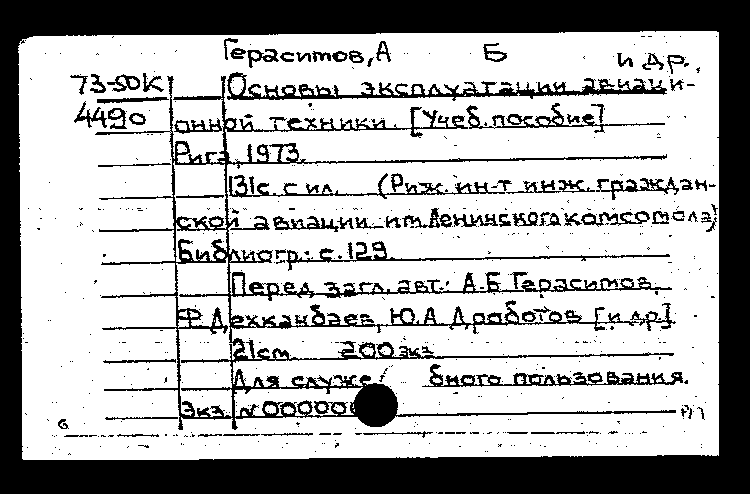 Герасимов, А Б и др.
73-50К Основы эксплуатации авиаци-
4490 онной техники. [Учеб. пособие]
Рига, 1973.
131с. с ил. (Риж. ин-т инж. граждан-
ской авиации им. Ленинского комсомола)
Библиогр.: с. 129.
Перед загл. авт.: А.Б Герасимов,
Ф Дехканбаев, Ю.А Дработов [и др]
21см 200 экз
Для служе бного пользования.
Экз. № 000000